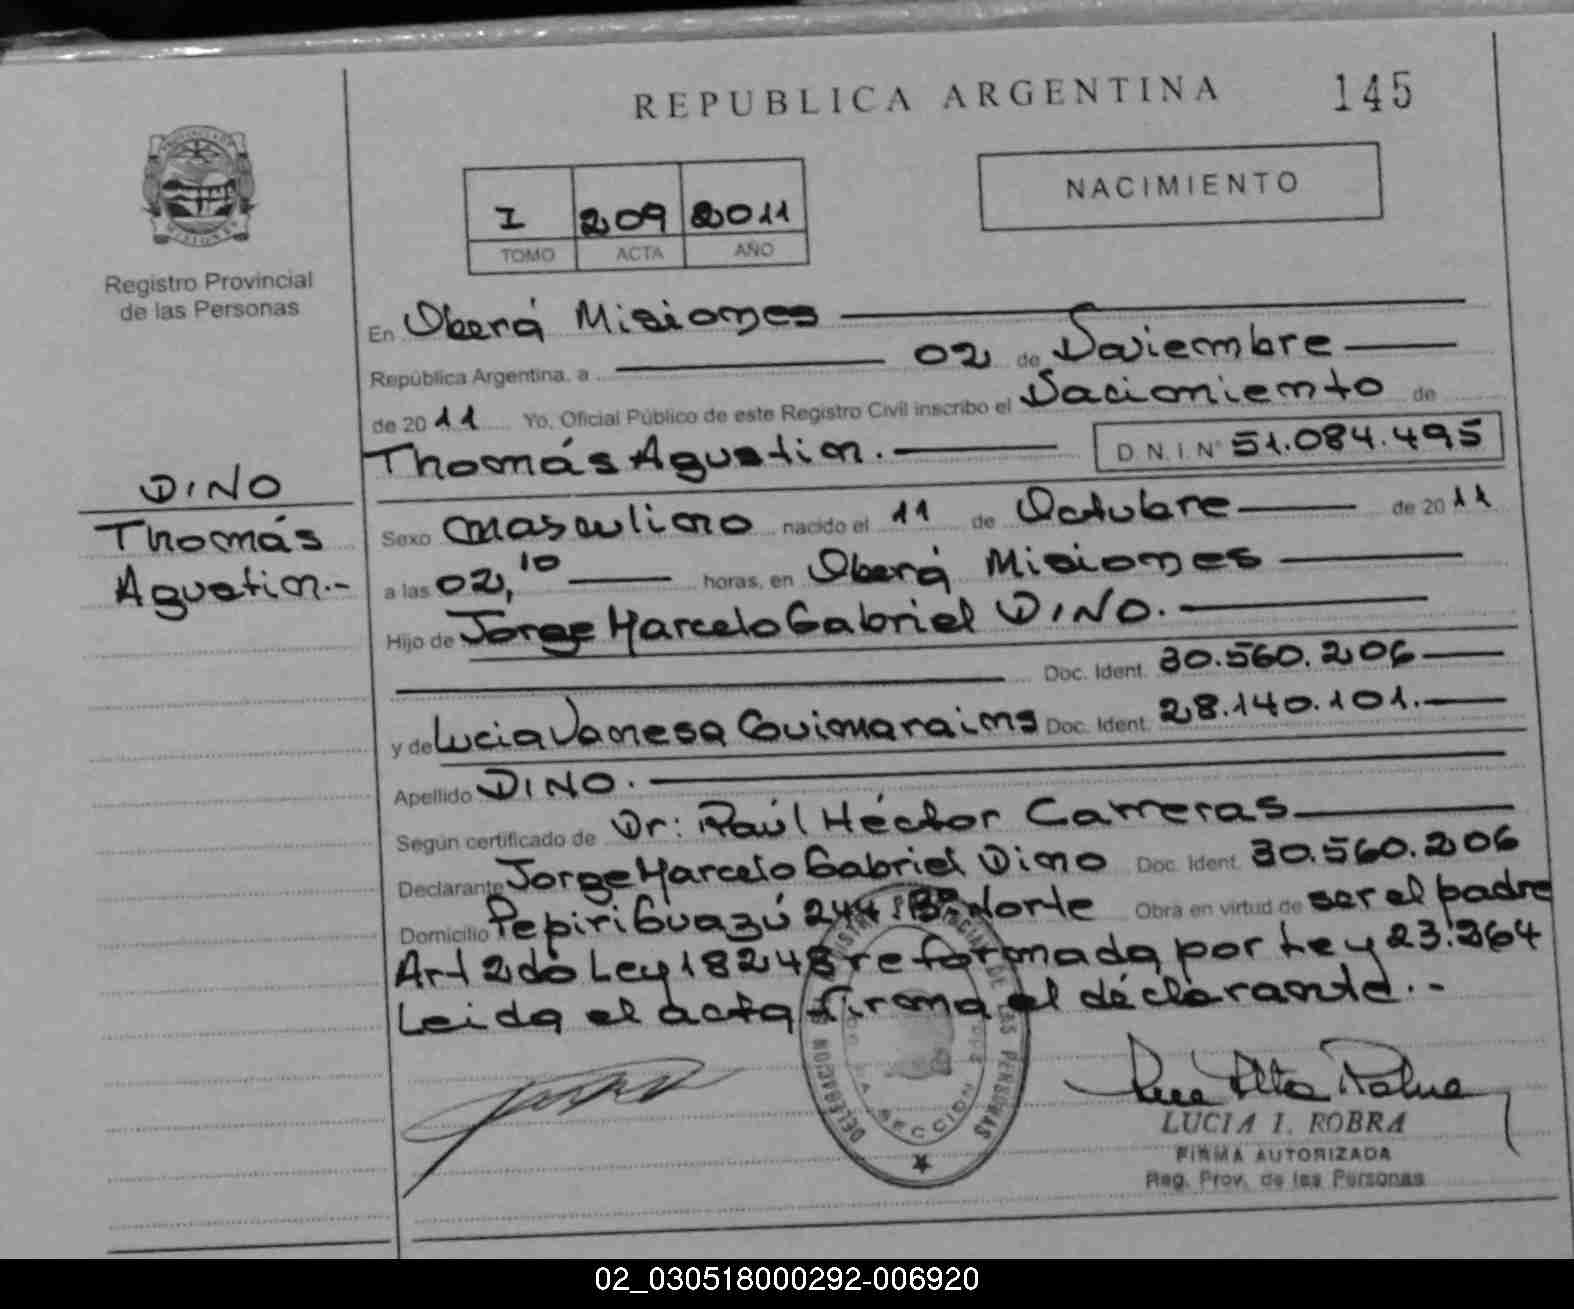 REPUBLICA ARGENTINA 145
PROVINCIA DE
MISIONES
Registro Provincial
de las Personas
I 209 2011
TOMO ACTA AÑO
NACIMIENTO
En Oberá Misiones
República Argentina, a 02 de Noviembre
de 2011 Yo, Oficial Público de este Registro Civil inscribo el Nacimiento de
Thomás Agustin. D.N.I. Nº 51.084.495
DINO
Thomás
Agustin.-
Sexo masculino nacido el 11 de Octubre de 2011
a las 02,10 horas, en Oberá Misiones
Hijo de Jorge Marcelo Gabriel DINO.
Doc. Ident. 30.560.206
y de Lucia Vanesa Guimarains Doc. Ident. 28.140.101.
Apellido DINO.
Según certificado de Dr: Raúl Héctor Carreras
Declarante Jorge Marcelo Gabriel Dino Doc. Ident. 30.560.206
Domicilio Pepiri Guazú 244 Bº Norte Obra en virtud de ser el padre
Art 2do Ley 18248 reformada por Ley 23.264
Leida el acta firma el déclarante.-
DELEGACION
DE LAS PERSONAS
SECCION
LUCIA I. ROBRA
FIRMA AUTORIZADA
Reg. Prov. de las Personas
02_030518000292-006920